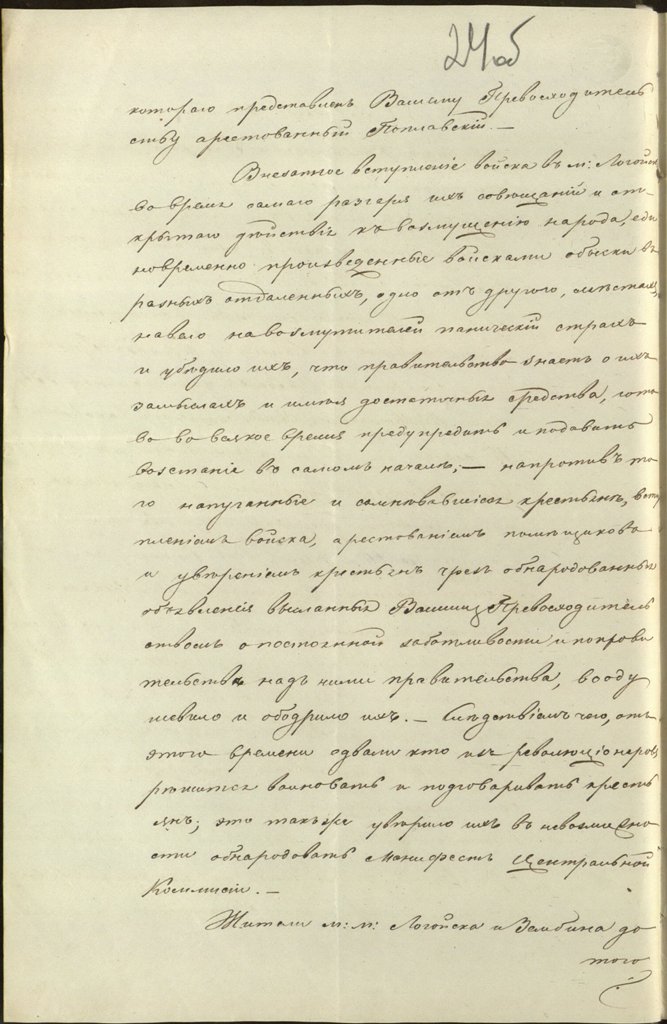 24об
котораго представленъ Вашему Превосходитель
ству арестованный Поплавскій. —
Внезапное вступленіе войска въ м: Логойск
во время самаго разгара ихъ совѣщаній и от-
крытаго дѣйствія къ возмущенію народа, еди
новременно произведенные войсками обыски въ
разныхъ отдаленныхъ, одно отъ другого, мѣстахъ,
навело на возмутителей паническій страхъ
и убѣдило ихъ, что правительство знаетъ о ихъ
замыслахъ и имѣя достаточныя средства, гото
во во всякое время предупредить и подавить
возстаніе въ самомъ началѣ; — напротивъ то
го напуганные и сомнѣвавшіеся крестьяне, всту
пленіемъ войска, арестованіемъ помѣщиковъ
и увѣреніемъ крестьянъ чрезъ обнародованныя
объявленія высланныя Вашимъ Превосходитель
ствомъ о постоянной заботливости и покрови
тельствѣ надъ ними правительства, вооду
шевило и ободрило ихъ. — Слѣдствіемъ чего, отъ
этого времени едвали кто изъ революціонеровъ
рѣшится волновать и подговаривать кресть
янъ; это также увѣрило ихъ въ невозможно
сти обнародовать манифестъ Центральной
Коммисіи. —
Жители м: м: Логойска и Зембина до
того